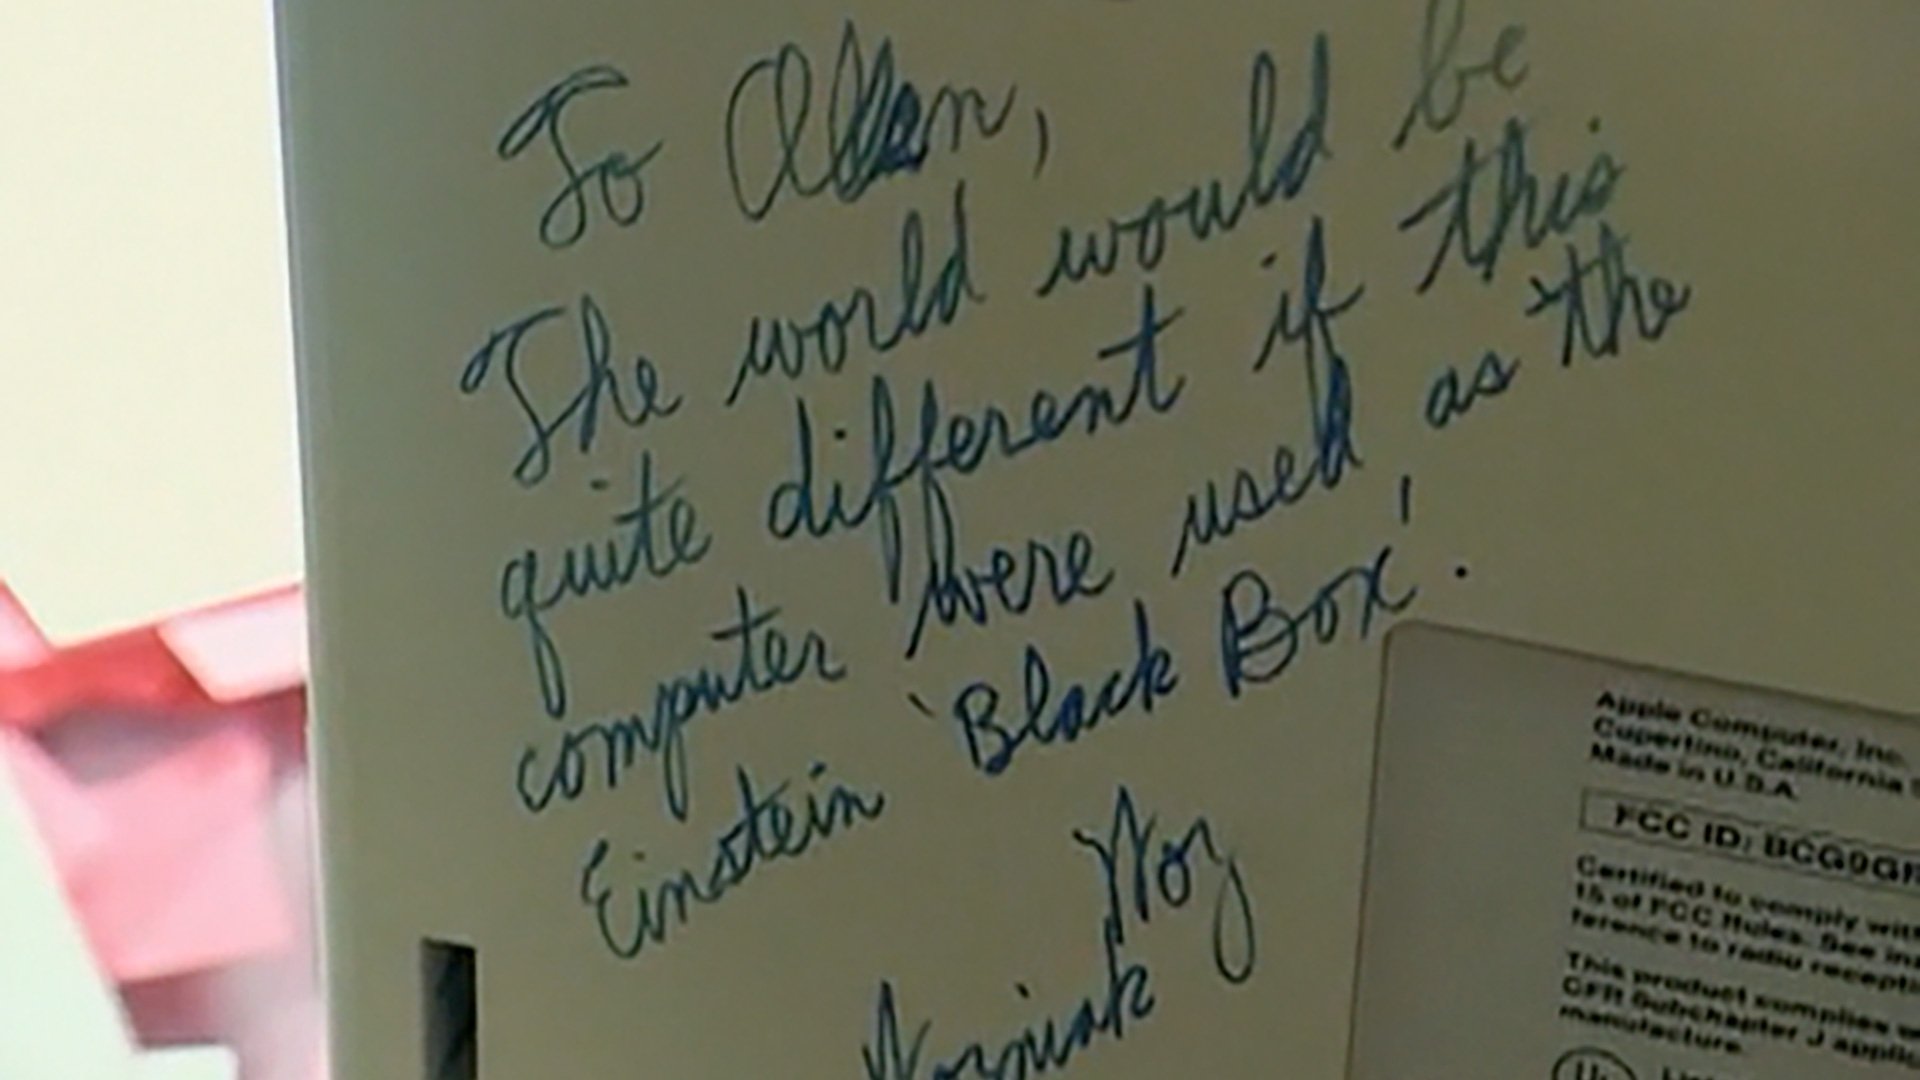 To Allan,
The world would be
quite different if this
computer were used as the
Einstein 'Black Box'.
Woz
Wozniak
Apple Computer, Inc.
Cupertino, California
Made in U.S.A.
FCC ID: BCG9GR
Certified to comply with
15 of FCC Rules. See ins
ference to radio recepti
This product complies w
CFR Subchapter J applic
manufacture.